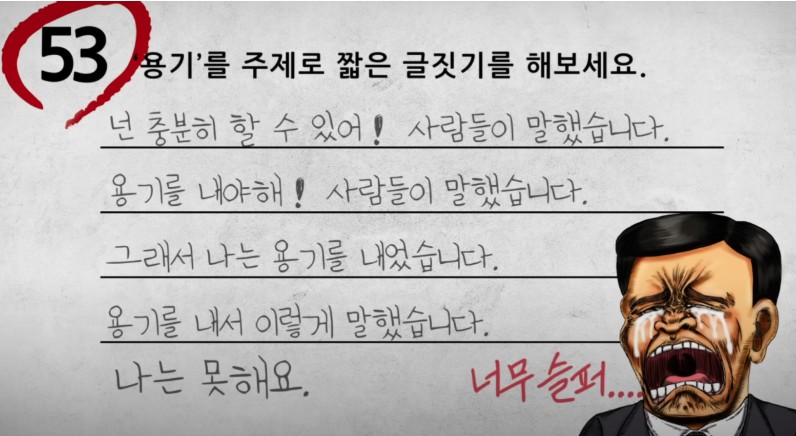 53 '용기'를 주제로 짧은 글짓기를 해보세요.
넌 충분히 할 수 있어! 사람들이 말했습니다.
용기를 내야해! 사람들이 말했습니다.
그래서 나는 용기를 내었습니다.
용기를 내서 이렇게 말했습니다.
나는 못해요.
너무 슬퍼....